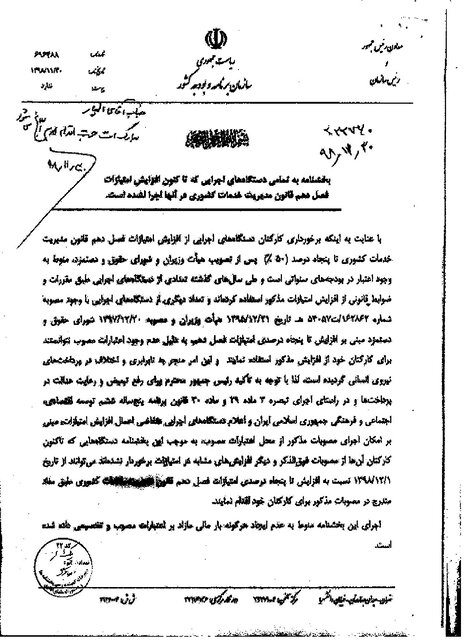 معاون رئیس جمهور
و
رئیس سازمان
ریاست جمهوری
سازمان برنامه و بودجه کشور
۶۹۶۴۸۸
۱۳۹۸/۱۱/۳۰
ندارد
بخشنامه به تمامی دستگاه‌های اجرایی که تاکنون افزایش امتیازات
فصل دهم قانون مدیریت خدمات کشوری در آنها اجرا نشده است.
با عنایت به اینکه برخورداری کارکنان دستگاه‌های اجرایی از افزایش امتیازات فصل دهم قانون مدیریت
خدمات کشوری تا پنجاه درصد (۵۰ ٪) پس از تصویب هیأت وزیران و شورای حقوق و دستمزد، منوط به
وجود اعتبار در بودجه‌های سنواتی است و طی سال‌های گذشته تعدادی از دستگاه‌های اجرایی طبق مقررات و
ضوابط قانونی از افزایش امتیازات مذکور استفاده کرده‌اند و تعداد دیگری از دستگاه‌های اجرایی با وجود مصوبه
شماره ۱۶۲۸۶۲/ت۵۳۰۵۷ هـ تاریخ ۱۳۹۵/۱۲/۲۱ هیأت وزیران و مصوبه ۱۳۹۷/۱۲/۲۰ شورای حقوق و
دستمزد مبنی بر افزایش تا پنجاه درصدی امتیازات فصل دهم به دلیل عدم وجود اعتبارات مصوب نتوانستند
برای کارکنان خود از افزایش مذکور استفاده نمایند و این امر منجر به نابرابری و اختلاف در پرداخت‌های
نیروی انسانی گردیده است، لذا با توجه به تأکید رئیس جمهور محترم برای رفع تبعیض و رعایت عدالت در
پرداخت‌ها و در راستای اجرای تبصره ۳ ماده ۲۹ و ماده ۳۰ قانون برنامه پنج‌ساله ششم توسعه اقتصادی،
اجتماعی و فرهنگی جمهوری اسلامی ایران و اعلام دستگاه‌های اجرایی متقاضی اعمال افزایش امتیازات، مبنی
بر امکان اجرای مصوبات مذکور از محل اعتبارات مصوب، به موجب این بخشنامه دستگاه‌هایی که تاکنون
کارکنان آن‌ها از مصوبات فوق‌الذکر و دیگر افزایش‌های مشابه در امتیازات برخوردار نشده‌اند می‌توانند از تاریخ
۱۳۹۸/۱۲/۱ نسبت به افزایش تا پنجاه درصدی امتیازات فصل دهم قانون کشوری طبق مفاد
مندرج در مصوبات مذکور برای کارکنان خود اقدام نمایند.
اجرای این بخشنامه منوط به عدم ایجاد هرگونه بار مالی مازاد بر اعتبارات مصوب و تخصیصی داده شده
است.